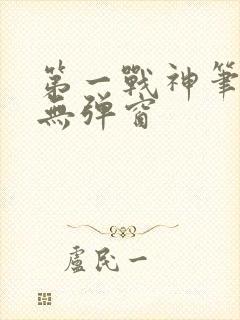 第一戰神筆
無彈窗
盧民一